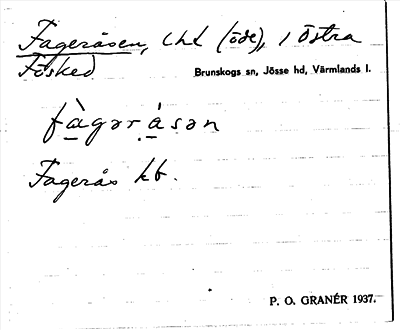 Fageråsen, lht (öde), i Östra
Fösked
Brunskogs sn, Jösse hd, Värmlands l.
fàgəråsən
Fagerås kb.
P. O. GRANÉR 1937.